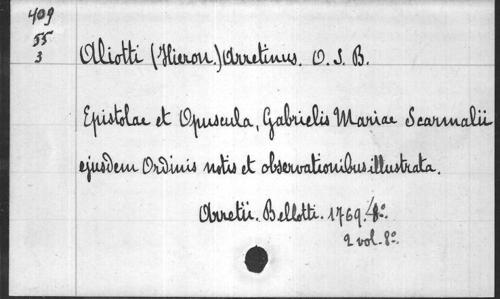 409
55
3
Aliotti (Hieron.) Arretinus. O. S. B.
Epistolae et Opuscula, Gabrielis Mariae Scarmalii
ejusdem Ordinis notis et observationibus illustrata.
Arretii. Bellotti. 1769. 8º.
2 vol. 8º.